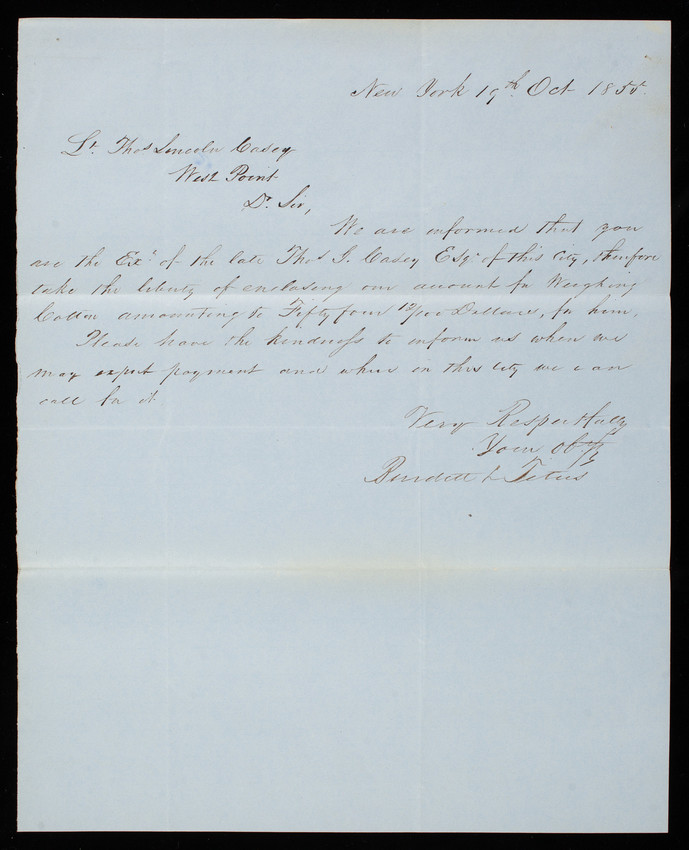 New York 19th Oct 1855.
Lt. Thos Lincoln Casey
West Point
Dr. Sir,
We are informed that you
are the Exr of the late Thos J. Casey Esqr of this City, therefore
take the liberty of enclosing our account for Weighing
Cotton amounting to Fifty four 12/100 Dollars, for him,
Please have the kindness to inform us when we
may expect payment and where in this City we can
call for it
Very Respectfully
Your Obt
& Titus